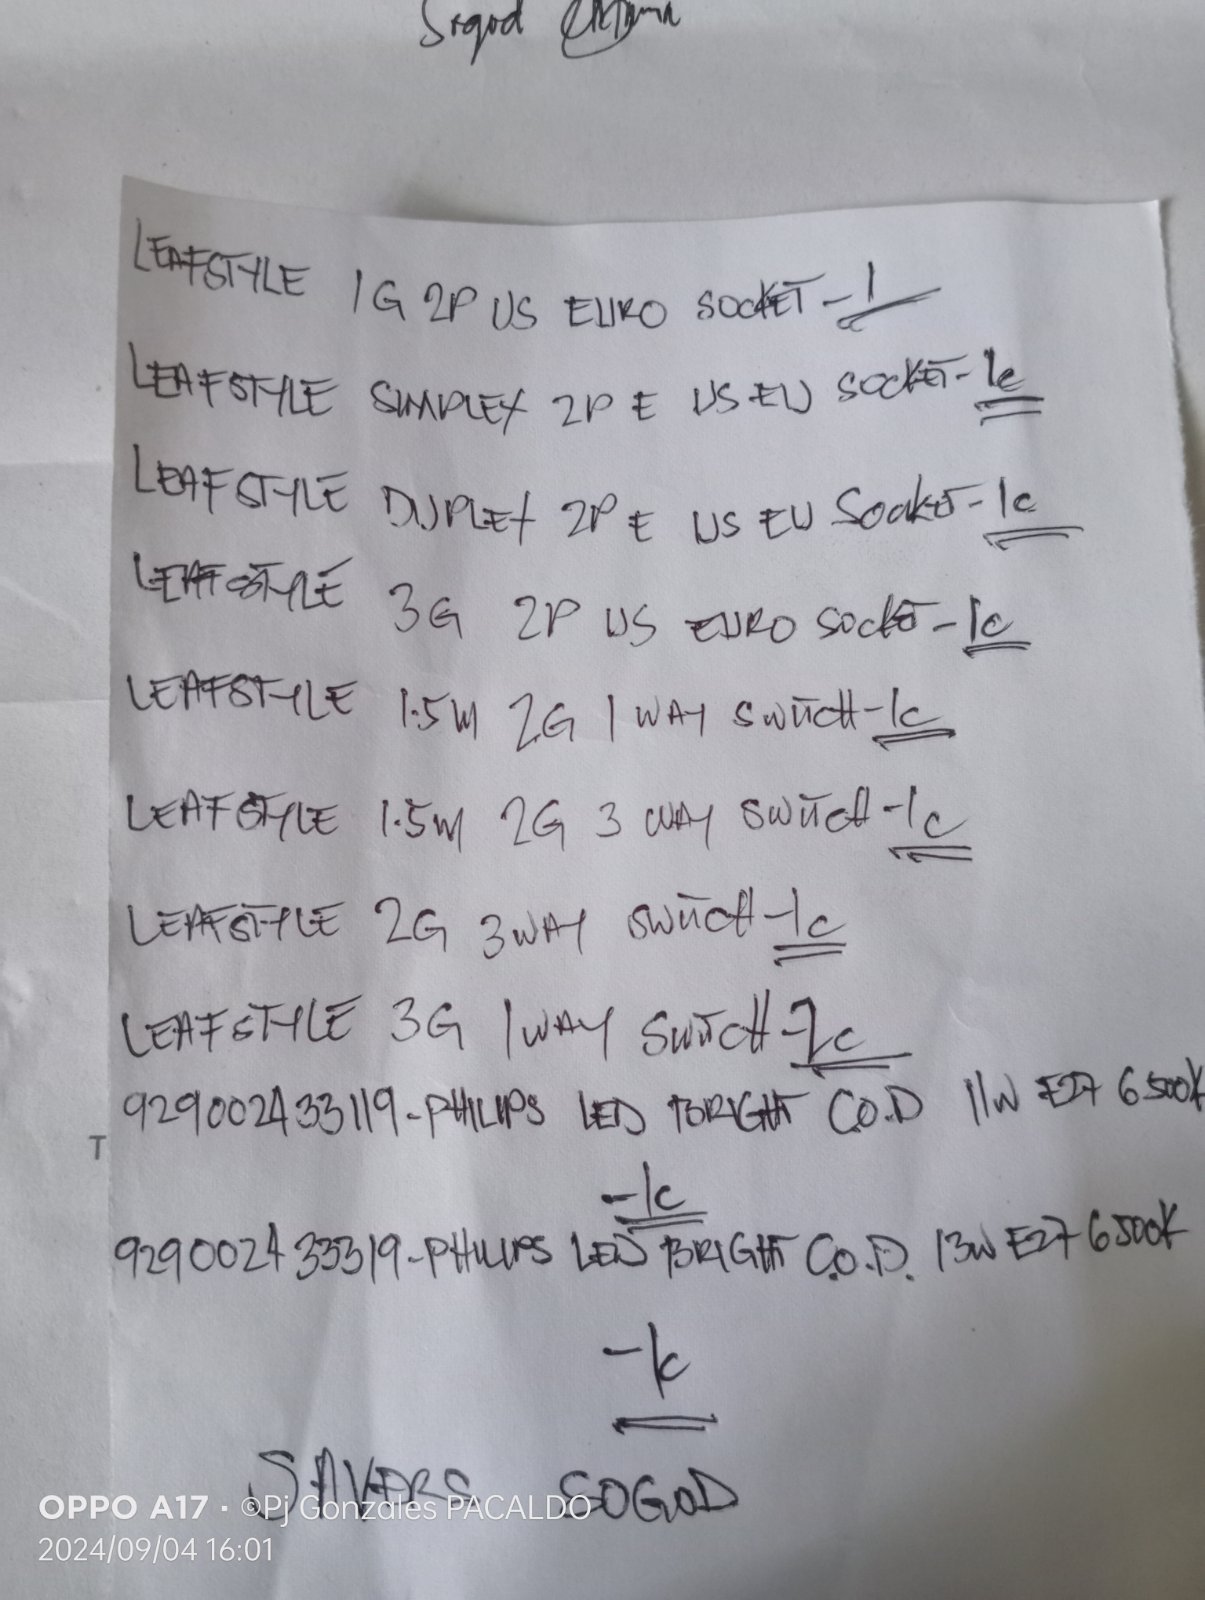 Sogod
LEAFSTYLE 1G 2P US EURO SOCKET - 1
LEAFSTYLE SIMPLEX 2P E US EU SOCKET - 1c
LEAFSTYLE DUPLEX 2P E US EU SOCKET - 1c
LEAFSTYLE 3G 2P US EURO SOCKET - 1c
LEAFSTYLE 1.5M 2G 1 WAY SWITCH - 1c
LEAFSTYLE 1.5M 2G 3 WAY SWITCH - 1c
LEAFSTYLE 2G 3WAY SWITCH - 1c
LEAFSTYLE 3G 1WAY SWITCH - 2c
929002433119 - PHILIPS LED BRIGHT C.O.D 11W E27 6500K
- 1c
929002433319 - PHILIPS LED BRIGHT C.O.D. 13W E27 6500K
- 1c
SAVERS SOGOD
T
OPPO A17 · ©Pj Gonzales PACALDO
2024/09/04 16:01